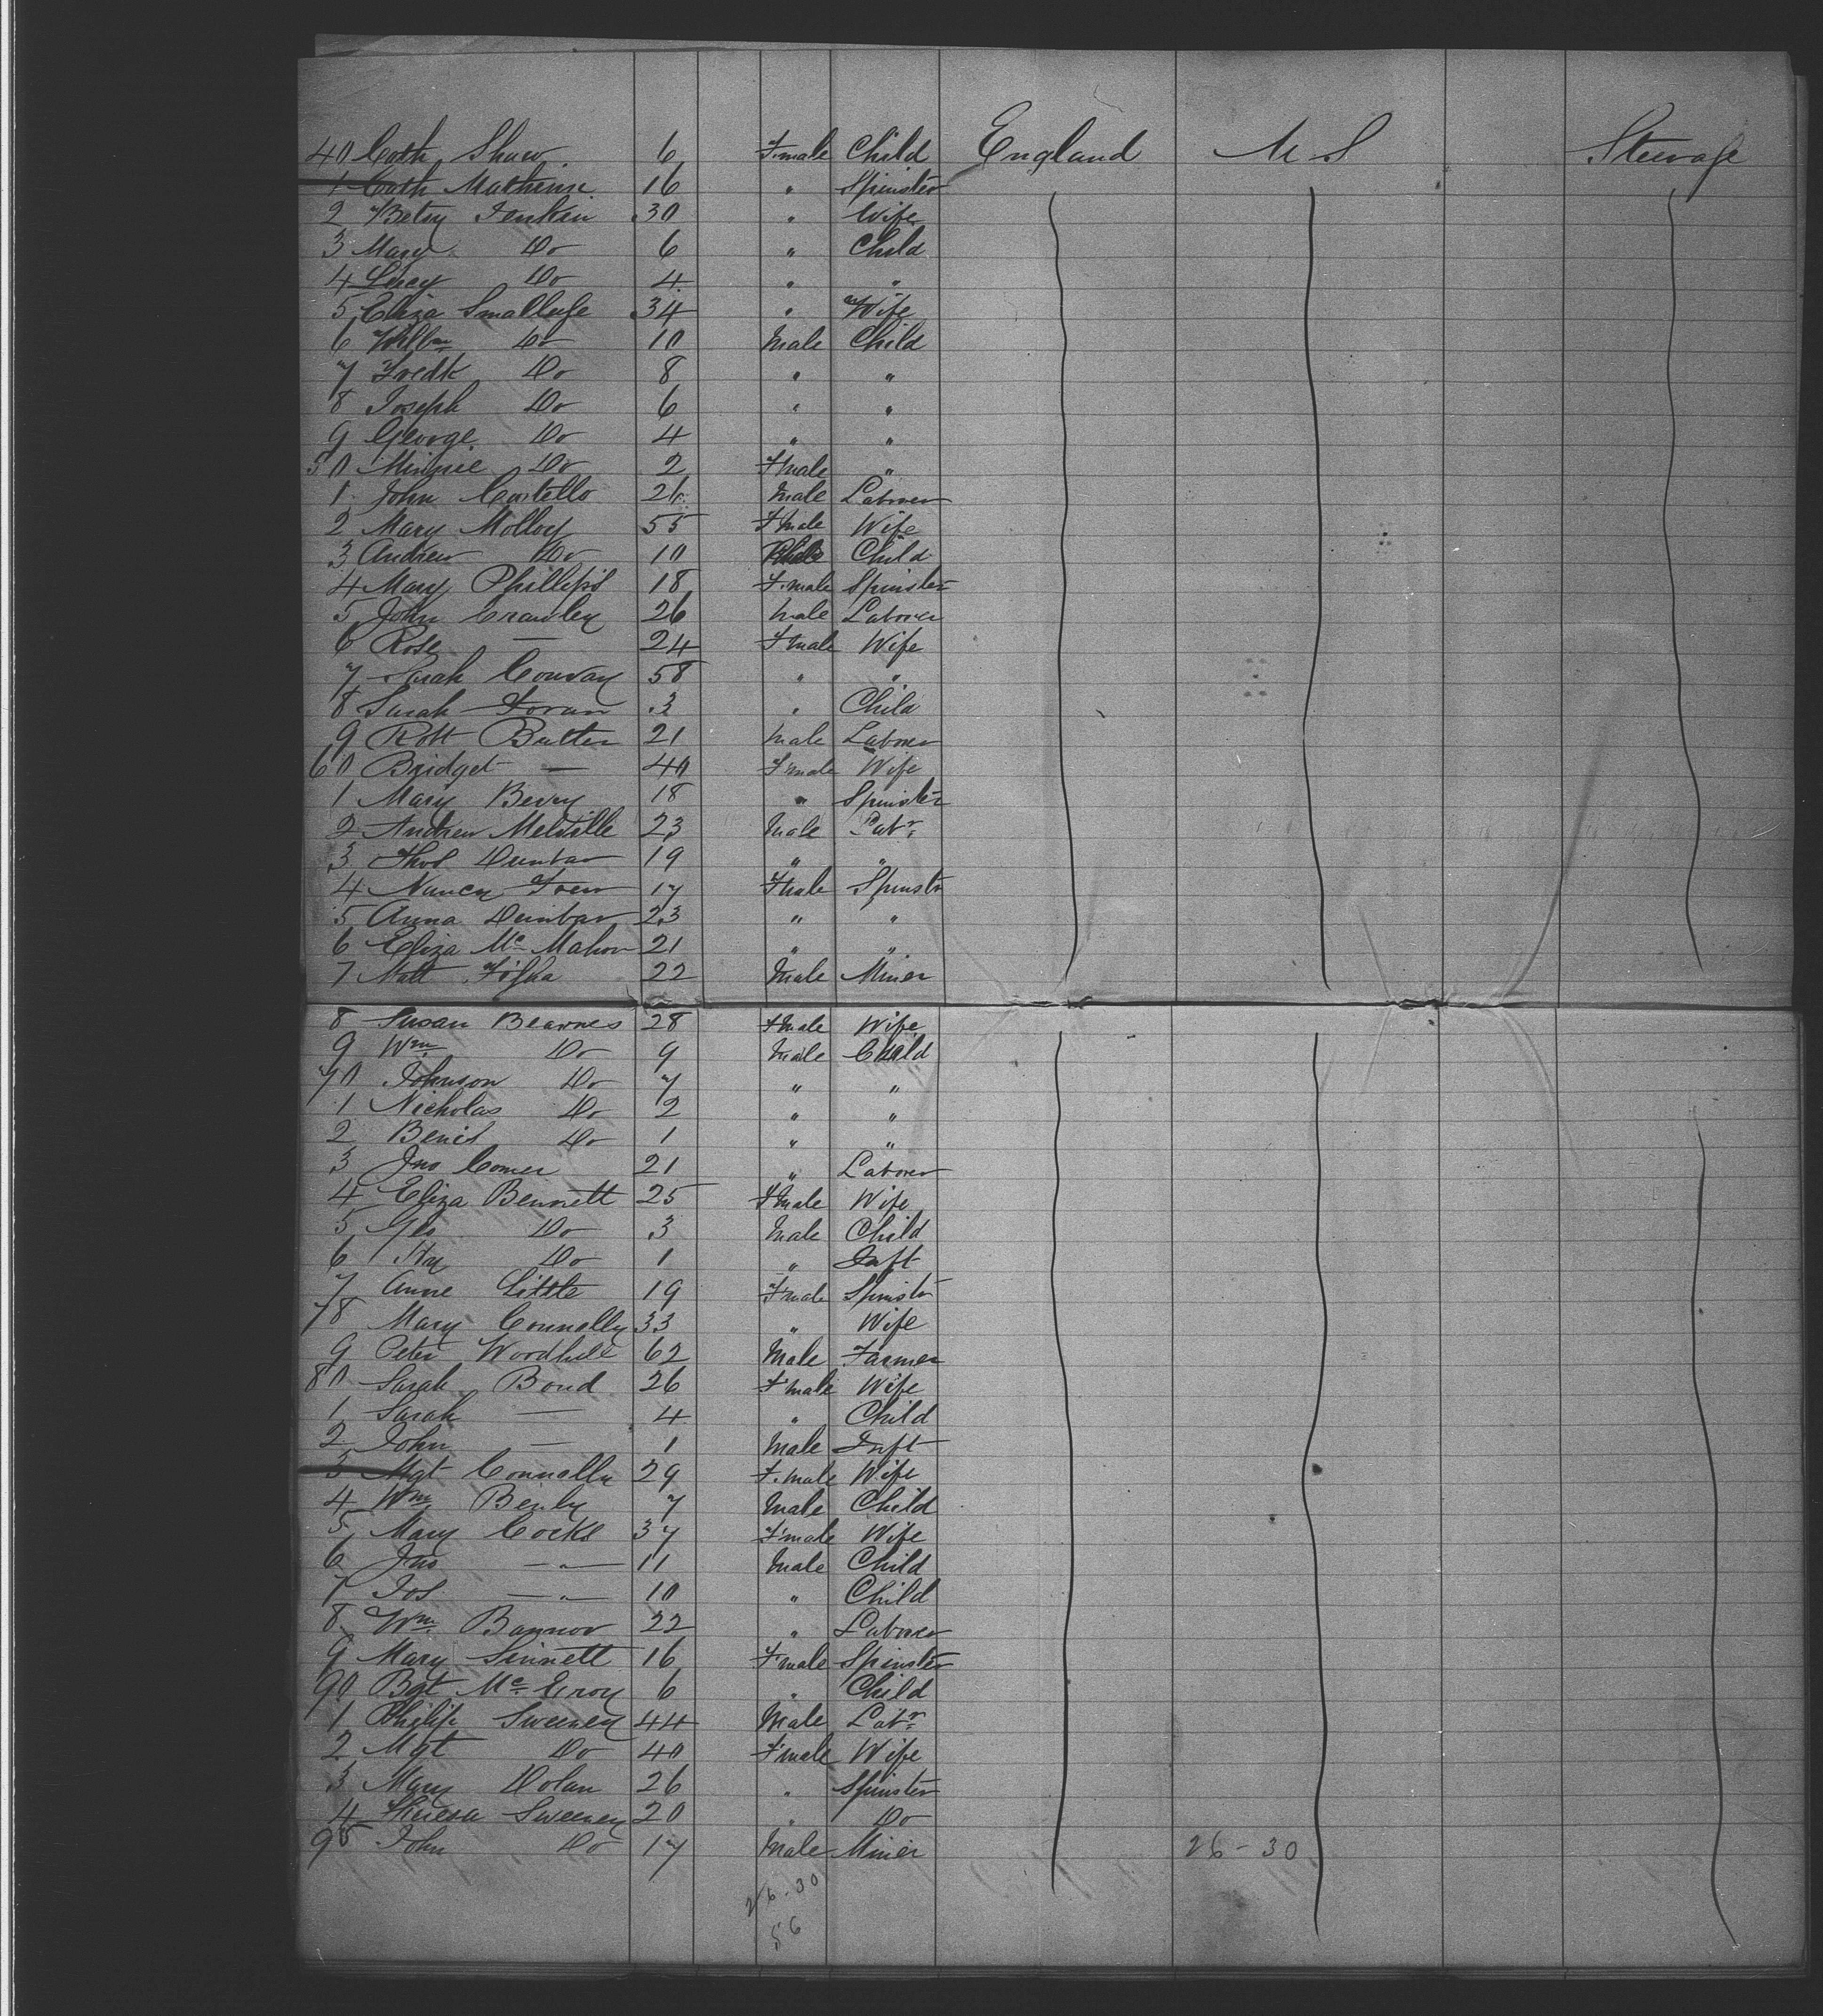 40 Cath Shaw 6 Female Child England U S Steerage
1 Cath 16 " Spinster
2 Betsy Jenkin 30 " Wife
3 Mary Do 6 " Child
4 Lucy Do 4 " "
5 Eliza 34 " Wife
6 Willm Do 10 Male Child
7 Fredk Do 8 " "
8 Joseph Do 6 " "
9 George Do 4 " "
50 Minnie Do 2 Fmale "
1 John Costello 26 Male Laborer
2 Mary Molloy 55 Fmale Wife
3 Andrew Do 10 Child
4 Mary Phillips 18 Female Spinster
5 John Crawley 26 Male Laborer
6 Rose — 24 Fmale Wife
7 Sarah Conway 58 " "
8 Sarah Foran 3 " Child
9 Robt Butler 21 Male Laborer
60 Bridget — 40 Fmale Wife
1 Mary Berry 18 " Spinster
2 Andrew Melville 23 Male Labr
3 Thos Dunbar 19 " "
4 Nancy 17 Fmale Spinstr
5 Anna Dunbar 23 " "
6 Eliza Mc Mahon 21 " "
7 Matt 22 Male Miner
8 Susan Bearnes 28 Fmale Wife
9 Wm Do 9 Male Child
70 Johnson Do 7 " "
1 Nicholas Do 2 " "
2 Do 1 " "
3 Jno Comer 21 " Laborer
4 Eliza Bennett 25 Fmale Wife
5 Geo Do 3 Male Child
6 Hy Do 1 " Inft
7 Anne Little 19 Fmale Spinstr
78 Mary Connolly 33 " Wife
9 Peter Wordhile 62 Male Farmer
80 Sarah Bond 26 Fmale Wife
1 Sarah — 4 " Child
2 John — 1 Male Inft
3 Mgt Connolly 29 Female Wife
4 Wm 7 Male Child
5 Mary Cocks 37 Fmale Wife
6 Jno — " — 11 Male Child
7 Jos — " — 10 " Child
8 Wm Bannor 22 " Laborer
9 Mary Sinnett 16 Fmale Spinster
90 Bgt Mc Eroy 6 " Child
1 Philip Sweeney 44 Male Labr
2 Mgt Do 40 Fmale Wife
3 Mary Dolan 26 " Spinster
4 Theresa Sweeney 20 " Do
95 John Do 17 Male Miner 26 - 30
26 - 30
56